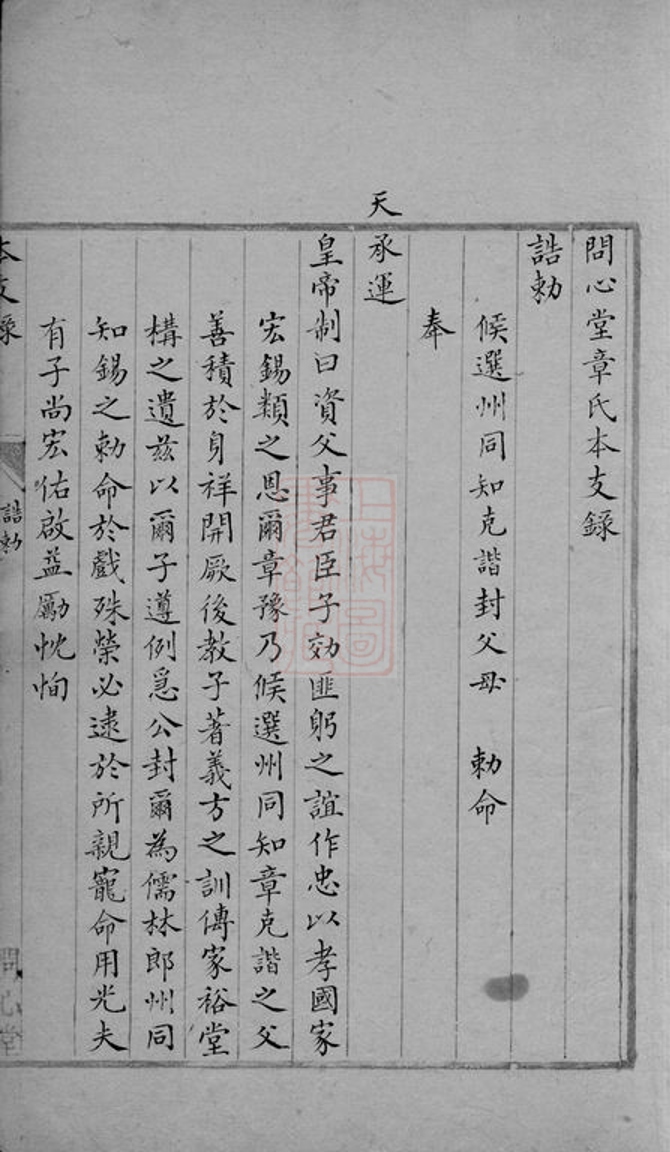 問心堂章氏本支錄
誥勅
候選州同知克諧封父母　勅命
奉
天承運
皇帝制曰資父事君臣子効匪躬之誼作忠以孝國家
宏錫類之恩爾章豫乃候選州同知章克諧之父
善積於身祥開厥後教子著義方之訓傳家裕堂
構之遺茲以爾子遵例急公封爾為儒林郎州同
知錫之勅命於戲殊榮必逮於所親寵命用光夫
有子尚宏佑啟益勵忱恂
本支錄
誥勅
問心堂
上海圖書館藏